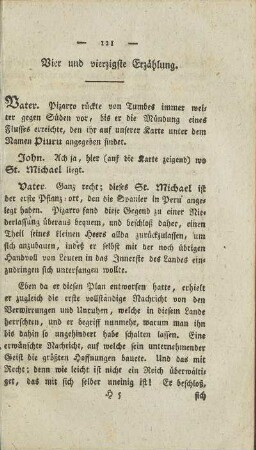 — 121 —
Vier und vierzigste Erzählung.
Vater. Pizarro rückte von Tumbes immer wei-
ter gegen Süden vor, bis er die Mündung eines
Flusses erreichte, den ihr auf unserer Karte unter dem
Namen Piuru angegeben findet.
John. Ach ja, hier (auf die Karte zeigend) wo
St. Michael liegt.
Vater. Ganz recht; dieses St. Michael ist
der erste Pflanz-ort, den die Spanier in Peru ange-
legt haben. Pizarro fand diese Gegend zu einer Nie-
derlassung überaus bequem, und beschloß daher, einen
Theil seines kleinen Heers allda zurückzulassen, um
sich anzubauen, indeß er selbst mit der noch übrigen
Handvoll von Leuten in das Innerste des Landes ein-
zudringen sich unterfangen wollte.
Eben da er diesen Plan entworfen hatte, erhielt
er zugleich die erste vollständige Nachricht von den
Verwirrungen und Unruhen, welche in diesem Lande
herrschten, und er begriff nunmehr, warum man ihn
bis dahin so ungehindert habe schalten lassen. Eine
erwünschte Nachricht, auf welche sein unternehmender
Geist die größten Hoffnungen bauete. Und das mit
Recht; denn wie leicht ist nicht ein Reich überwälti-
get, das mit sich selber uneinig ist! Er beschloß,
H 5 sich